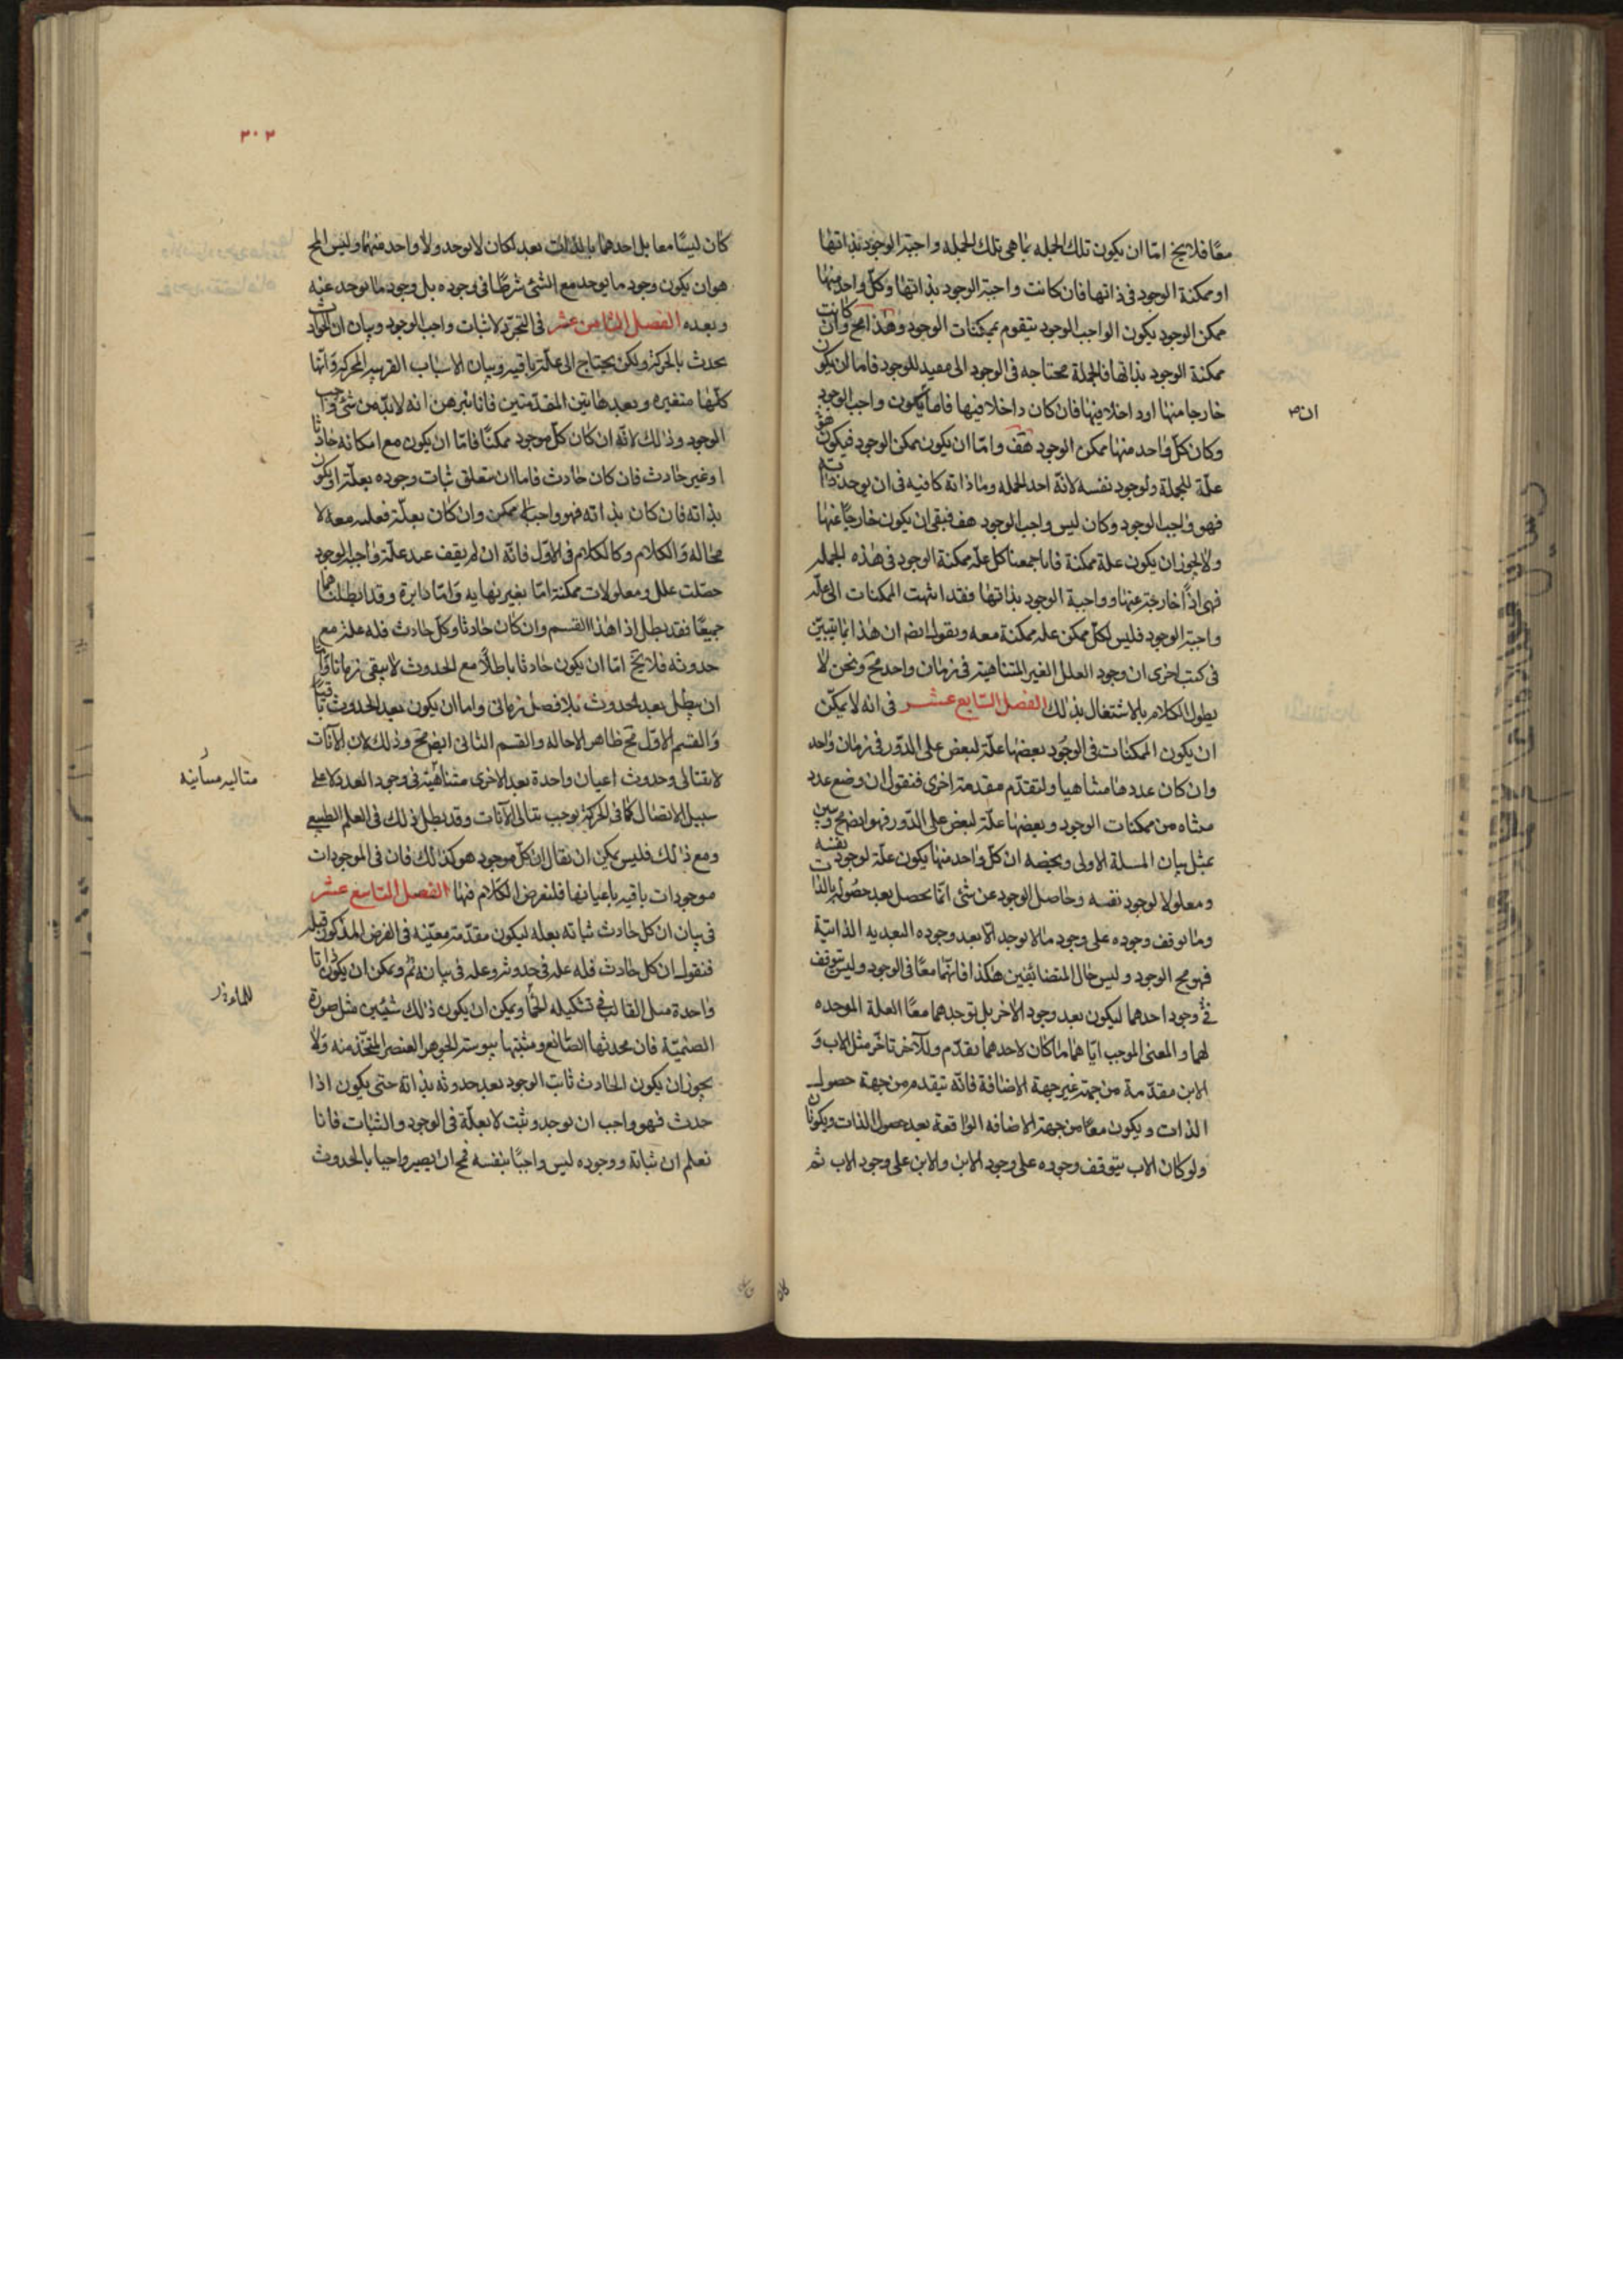 معًا فلا يخ امّا ان يكون تلك الجمله بما هى تلك الجمله واجبة الوجود بذاتها
او ممكنة الوجود فى ذاتها فان كانت واجبة الوجود بذاتها وكلّ واحد منها
ممكن الوجود يكون الواجب الوجود يتقوم بممكنات الوجود وهذا مح وان كانت
ممكنة الوجود بذاتها فالجملة محتاجه فى الوجود الى مفيد للوجود فاما ان يكون
خارجا منها او داخلا فيها فان كان داخلا فيها فاما يكون واجب الوجود
ان
وكان كلّ واحد منها ممكن الوجود هف واما ان يكون ممكن الوجود فيكون هو
علّة للجملة ولوجود نفسه لانّه احد الجمله وما ذاته كافيه فى ان يوجد ذاته
فهو واجب الوجود وكان ليس واجب الوجود هف فبقى ان يكون خارجًا عنها
ولا يجوز ان يكون علة ممكنة فانا جمعنا كل علة ممكنة الوجود فى هذه الجملة
فهى اذًا خارجة عنها وواجبة الوجود بذاتها فقد انتهت الممكنات الى علّة
واجبة الوجود فليس لكلّ ممكن علة ممكنة معه ونقول ايضا ان هذا انما يتبيّن
فى كتب اخرى ان وجود العلل الغير المتناهية فى زمان واحد مح ونحن لا
يطول الكلام بالاشتغال بذلك الفصل السابع عشر فى انه لا يمكن
ان يكون الممكنات فى الوجود بعضها علّة لبعض على الدّور فى زمان واحد
وان كان عددها متناهيا ولنقدّم مقدمة اخرى فنقول ان وضع عدد
متناه من ممكنات الوجود وبعضها علّة لبعض على الدّور فهو ايضا مح وتبين
بمثل بيان المسلة الاولى ويخصه ان كلّ واحد منها يكون علّة لوجود نفسه
ومعلولا لوجود نفسه وحاصل الوجود عن شئ انما يحصل بعد حصوله بالذات
وما توقف وجوده على وجود ما لا يوجد الّا بعد وجوده البعديه الذاتيّة
فهو مح الوجود وليس حال المتضائفين هكذا فانهما معًا فى الوجود وليس يتوقف
فى وجود احدهما ليكون بعد وجود الاخر بل توجدهما معًا العلة الموجده
لهما والمعنى الموجب ايّاهما ما كان لاحدهما تقدّم وللآخر تاخّر مثل الاب و
الابن مقدّمة من جهة غير جهة الاضافة فانّه يتقدم من جهة حصول
الذات ويكون معًا من جهة الاضافه الواقعة بعد حصول الذات ويكونان
ولو كان الاب يتوقف وجوده على وجود الابن والابن على وجود الاب ثم
كان
٣٠٣
كان ليسا معا بل احدهما بالذات بعد لكان لا يوجد ولا واحد منهما وليس المح
هو ان يكون وجود ما يوجد مع الشئ شرطًا فى وجوده بل وجود ما يوجد عنه
وبعده الفصل الثامن عشر فى التجرّد لاثبات واجب الوجود وبيان ان الحوادث
تحدث بالحركة ولكن يحتاج الى علّة باقية وبيان الاسباب القريبة المحركة وانّها
كلّها متغيره وبعد هاتين المقدّمتين فانا نبرهن انه لا بدّ من شئ واجب
الوجود وذلك لانّه ان كان كلّ موجود ممكنًا فامّا ان يكون مع امكانه حادثًا
او غير حادث فان كان غير حادث فاما ان يتعلق ثبات وجوده بعلّة او يكون
بذاته فان كان بذاته فهو واجب لا ممكن وان كان بعلّة فعلته معه لا
محاله والكلام وكالكلام فى الاوّل فانّه ان لم يقف عند علّة واجب الوجود
حصّلت علل ومعلولات ممكنة امّا بغير نهايه وامّا دايرة وقد ابطلناهما
جميعًا فقد بطل اذا هذا القسم وان كان حادثا وكلّ حادث فله علة مع
حدوثه فلا يخ امّا ان يكون حادثا باطلًا مع الحدوث لا يبقى زمانا وامّا
ان يبطل بعد الحدوث بلا فصل زمانى واما ان يكون بعد الحدوث باقيًا
والقسم الاوّل مح ظاهر الاحاله والقسم الثانى ايضا مح وذلك لان الآنات
لا تتتالى وحدوث اعيان واحدة بعد الاخرى متناهية فى وجود العدد لا على
متاليه مساينه
سبيل الاتصال كما فى الحركة يوجب تتالى الآنات وقد بطل ذلك فى العلم الطبيعى
ومع ذلك فليس يمكن ان يقال ان كلّ موجود هو كذلك فان فى الموجودات
موجودات باقيه باعيانها فلنفرض الكلام فيها الفصل التاسع عشر
فى بيان ان كل حادث ثباته بعله ليكون مقدّمة معيّنه فى الغرض المذكور قبله
فنقول ان كل حادث فله علة فى حدوثه وعله فى ثباته ثم ويمكن ان يكون ذاتا
واحدة مثل القالب فى تشكيله الماء ويمكن ان يكون ذلك شيئين مثل صورة
الصنميّة فان محدثها الصّانع ومثبتها يبوسة الجوهر العنصر المتخّذ منه ولا
يجوز ان يكون الحادث ثابت الوجود بعد حدوثه بذاته حتى يكون اذا
حدث فهو واجب ان يوجد ويثبت لا بعلّة فى الوجود والثبات فانا
نعلم ان ثباته ووجوده ليس واجبًا بنفسه فمح ان يصير واجبا بالحدوث